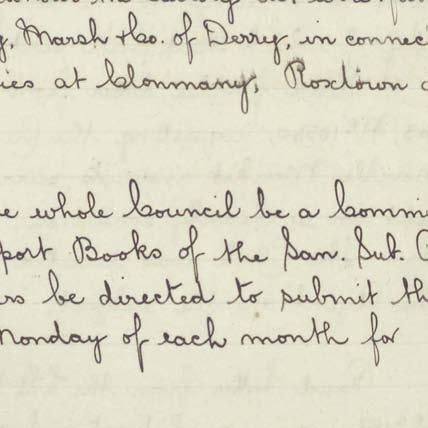 Marsh & Co. of Derry, in connec
ies at Clonmany, Roxtown
e whole Council be a Commi
port Books of the San. Sub.
rs be directed to submit th
Monday of each month for